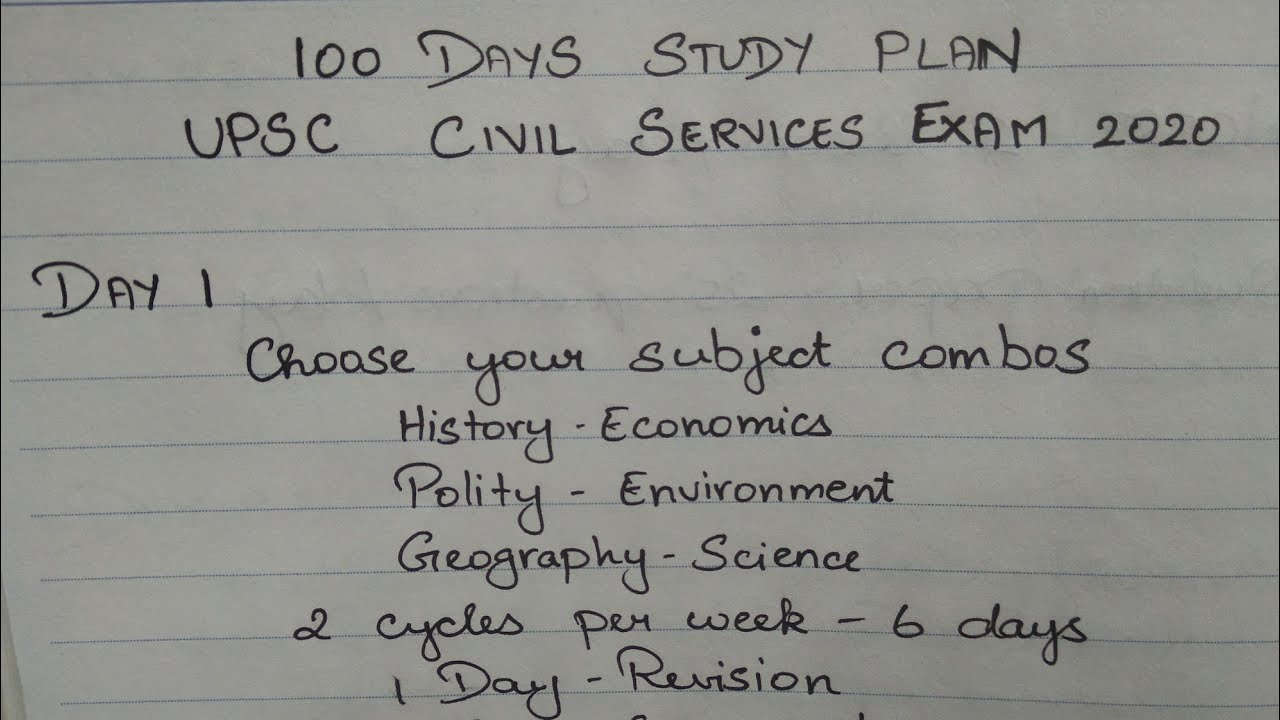 100 DAYS STUDY PLAN
UPSC CIVIL SERVICES EXAM 2020
DAY 1
Choose your subject combos
History - Economics
Polity - Environment
Geography - Science
2 cycles per week - 6 days
1 Day - Revision